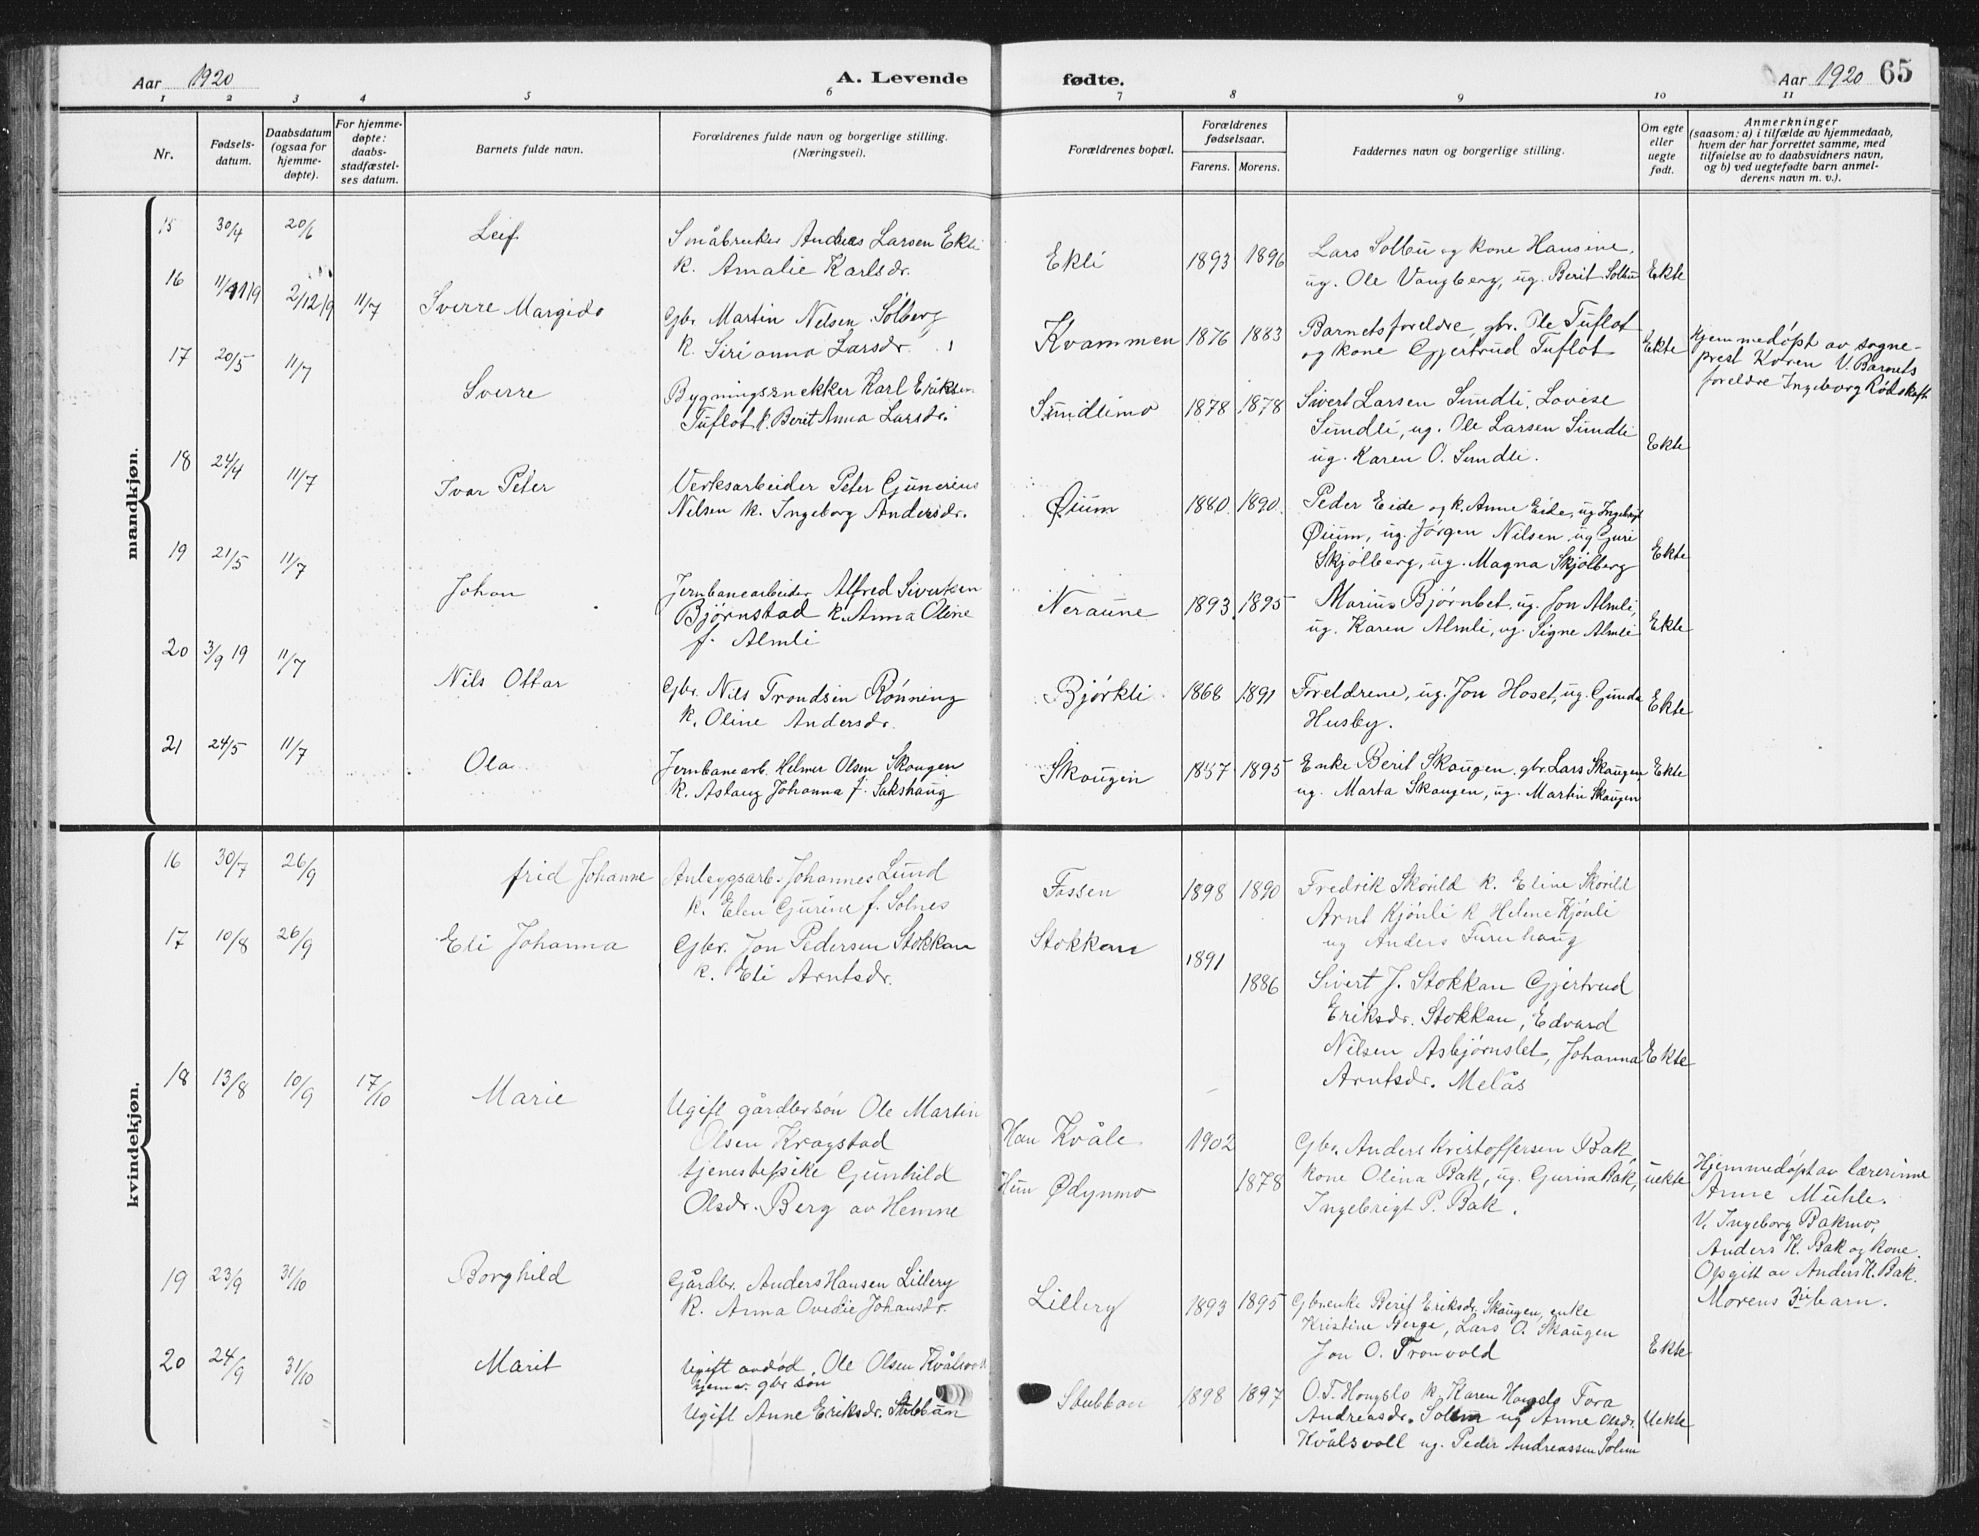 Aar 1920
A. Levende
fødte.
Aar 1920 65
1 2 3 4 5 6 7 8 9 10 11
Nr.
Fødsels-
datum.
Daabsdatum
(ogsaa for
hjemme-
døpte).
For hjemme-
døpte:
daabs-
stadfæstel-
ses datum.
Barnets fulde navn.
Forældrenes fulde navn og borgerlige stilling.
(Næringsvei).
Forældrenes bopæl.
Forældrenes
fødselsaar.
Farens. Morens.
Faddernes navn og borgerlige stilling.
Om egte
eller
uegte
født.
Anmerkninger
(saasom: a) i tilfælde av hjemmedaab,
hvem der har forrettet samme, med
tilføielse av to daabsvidners navn,
og b) ved uegtefødte barn anmel-
derens navn m. v.).
mandkjøn.
15 30/4 20/6 Leif
Småbruker Andreas Larsen Ekli
k. Amalie Karlsdr.
Ekli 1893 1896
Lars Solbu og kone Hansine,
ug. Ole Vangberg, ug. Berit Solbu
Ekte
16 2/12 19 11/7 Sverre Margido
Gbr. Martin Nilsen Solberg
k. Siri Anna Larsdr.
Kvammen 1876 1883
Barnets foreldre, gbr. Ole Tuflot
og kone Gjertrud Tuflot
Ekte
Hjemmedøpt av sogne-
prest Koren V. Barnets
foreldre Ingeborg Rødskaft
17 20/5 11/7 Sverre
Bygningssnekker Karl Eriksen
Tuflot k. Berit Anna Larsdr.
Sundlimo 1878 1878
Sivert Larsen Sundli, Lovise
Sundli, ug. Ole Larsen Sundli
ug. Karen O. Sundli.
Ekte
18 24/4 11/7 Ivar Peter
Verksarbeider Peter Gunerius
Nilsen k. Ingeborg Andersdr.
Øium 1880 1890
Peder Eide og k. Anne Eide, ug Ingebrigt
Øium, ug. Jørgen Nilsen, ug Guri
Skjølberg, ug. Magna Skjølberg
Ekte
19 21/5 11/7 Johan
Jernbanearbeider Alfred Sivertsen
Bjørnstad k. Anna Oline
f. Almli
Neraune 1893 1895
Marius Bjørnbet, ug. Jon Almli,
ug. Karen Almli, ug. Signe Almli
Ekte
20 3/9 19 11/7 Nils Ottar
Gbr. Nils Trondsen Rønning
k. Oline Andersdr.
Bjørkli 1868 1891
Foreldrene, ug. Jon Hoset, ug. Gunda
Husby.
Ekte
21 24/5 11/7 Ola
Jernbanearb. Helmer Olsen Skaugen
k. Aslaug Johanna f. Sakshaug
Skaugen 1895
Enke Berit Skaugen, gbr. Lars Skaugen,
ug. Marta Skaugen, ug. Martin Skaugen
Ekte
kvindekjøn.
16 30/7 26/9 frid Johanne
Anleggsarb. Johannes Lund
k. Elen Gurine f. Solnes
Fossen 1898 1890
Fredrik Skorild k. Eline Skorild
Arnt Kjønli k Helene Kjønli
ug Anders Furuhaug
17 10/8 26/9 Eli Johanna
Gbr. Jon Pedersen Stokkan
k. Eli Arntsdr.
Stokkan 1891 1886
Sivert J. Stokkan Gjertrud
Eriksdr. Stokkan, Edvard
Nilsen Asbjørnslet, Johanna
Arntsdr. Melås
Ekte
18 13/8 10/9 17/10 Marie
Ugift gårdbrsøn Ole Martin
Olsen Kragstad
tjenestepike Gunhild
Olsdr. Berg av Hemne
Han Kvåle 1902
Hun Ødynmo 1878
Gbr. Anders Kristoffersen Bak,
kone Olina Bak, ug. Gurina Bak,
Ingebrigt P. Bak.
uekte
Hjemmedøpt av lærerinne
Anne Muhle.
V. Ingeborg Bakmo,
Anders K. Bak og kone.
Opgitt av Anders K. Bak.
Morens 3die barn.
19 23/9 31/10 Borghild
Gårdbr. Anders Hansen Lillery
k. Anna Ovedie Johansdr.
Lillery 1893 1895
Gbrenke Berit Eriksdr. Skaugen, enke
Kristine Berge, Lars O. Skaugen
Jon O. Tronvold
Ekte
20 24/9 31/10 Marit
Ugift avdød Ole Olsen Kvålsvoll
hjemv. gbrsøn
Ugift Anne Eriksdr. Stubban
Stubban 1898 1897
O. T. Hongslo k. Karen Hongslo Tora
Andreasdr. Solem ug Anne Olsdr.
Kvålsvoll ug. Peder Andreassen Solem
Uekte